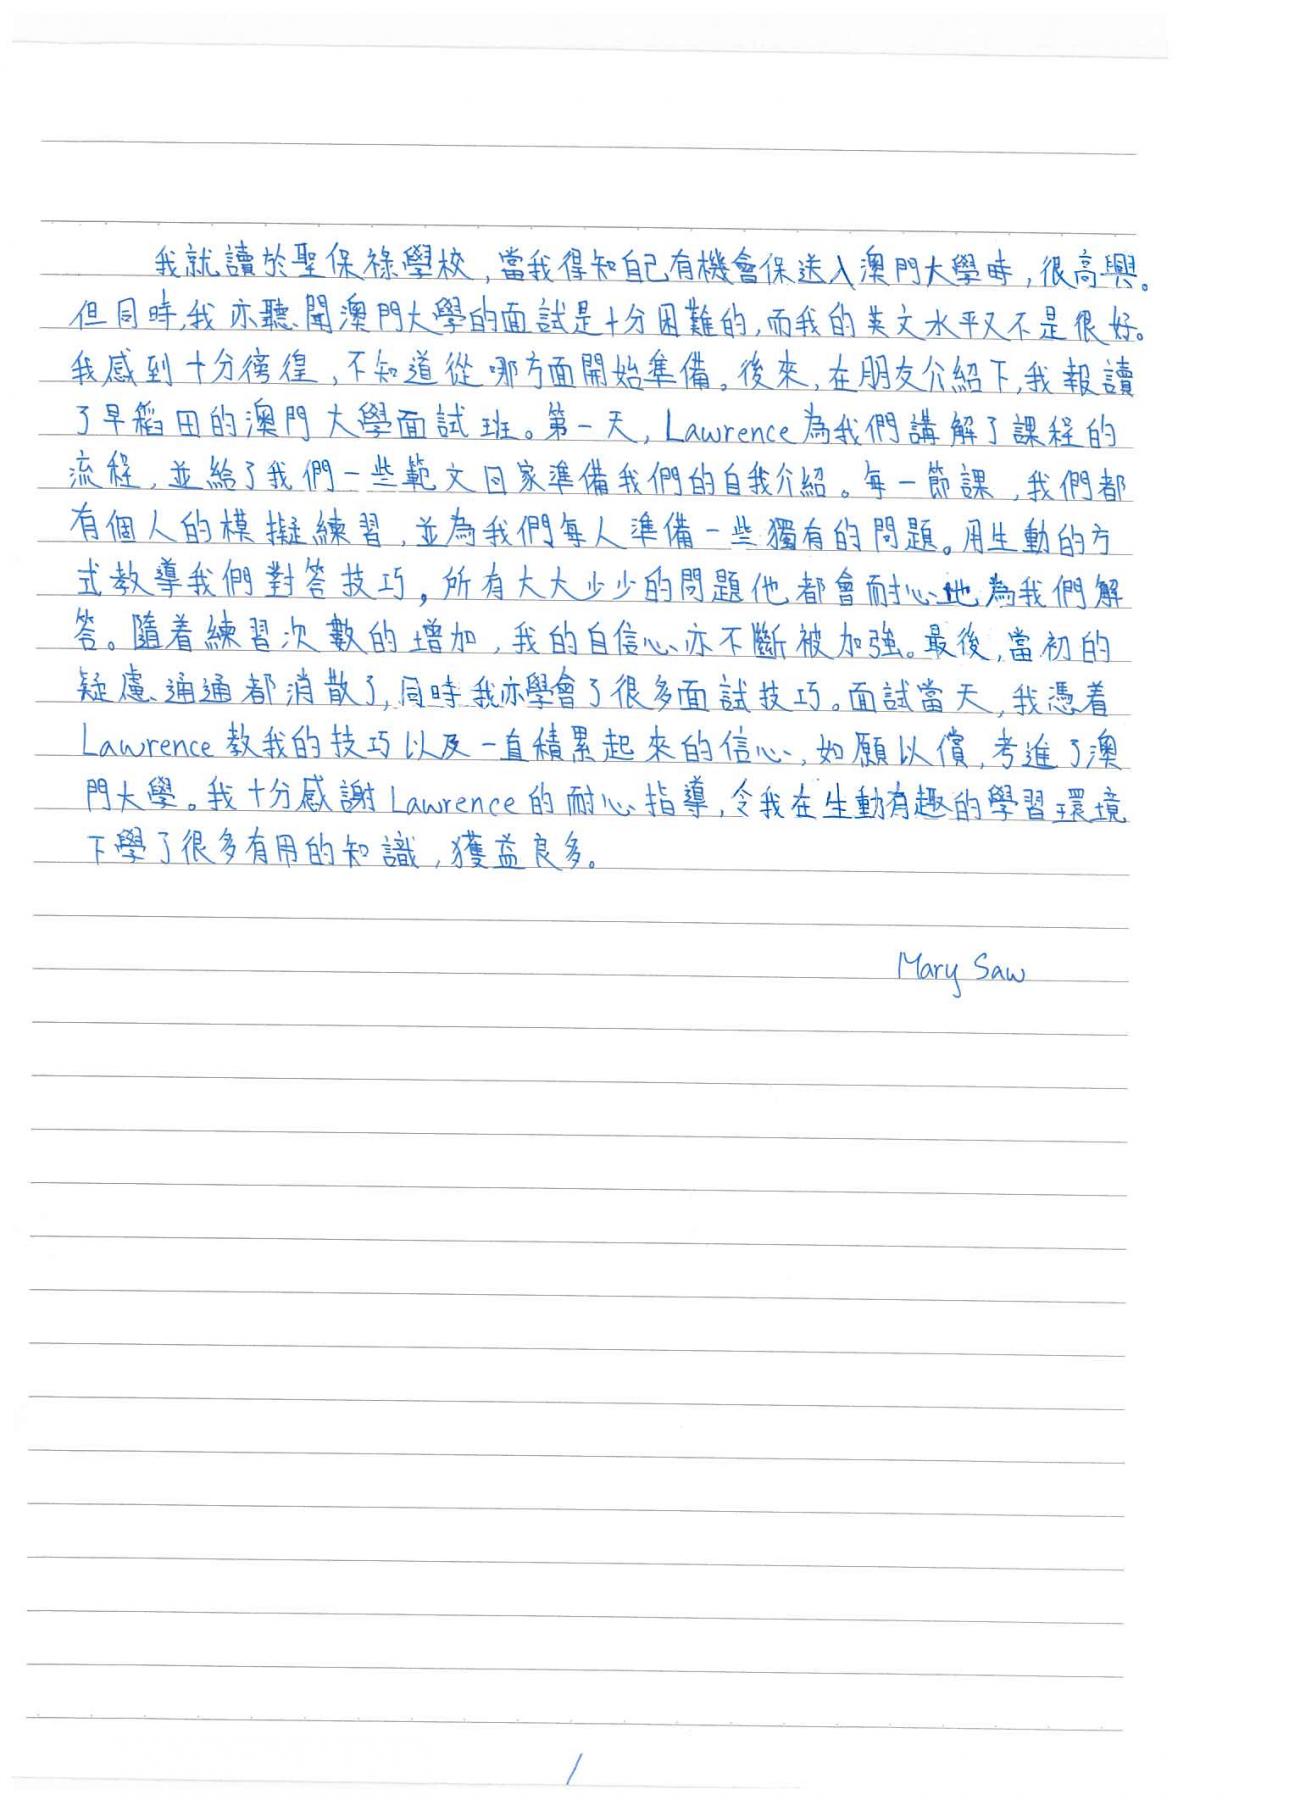 我就讀於聖保祿學校，當我得知自己有機會保送入澳門大學時，很高興。
但同時，我亦聽聞澳門大學的面試是十分困難的，而我的英文水平又不是很好。
我感到十分徬徨，不知道從哪方面開始準備。後來，在朋友介紹下，我報讀
了早稻田的澳門大學面試班。第一天，Lawrence為我們講解了課程的
流程，並給了我們一些範文回家準備我們的自我介紹。每一節課，我們都
有個人的模擬練習，並為我們每人準備一些獨有的問題。用生動的方
式教導我們對答技巧，所有大大少少的問題他都會耐心地為我們解
答。隨着練習次數的增加，我的自信心亦不斷被加強。最後，當初的
疑慮通通都消散了，同時我亦學會了很多面試技巧。面試當天，我憑着
Lawrence教我的技巧以及一直積累起來的信心，如願以償，考進了澳
門大學。我十分感謝Lawrence的耐心指導，令我在生動有趣的學習環境
下學了很多有用的知識，獲益良多。
Mary Saw